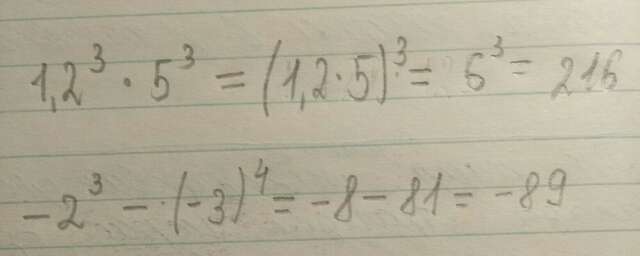 1,2³ · 5³ = (1,2·5)³ = 6³ = 216
-2³ - (-3)⁴ = -8 - 81 = -89